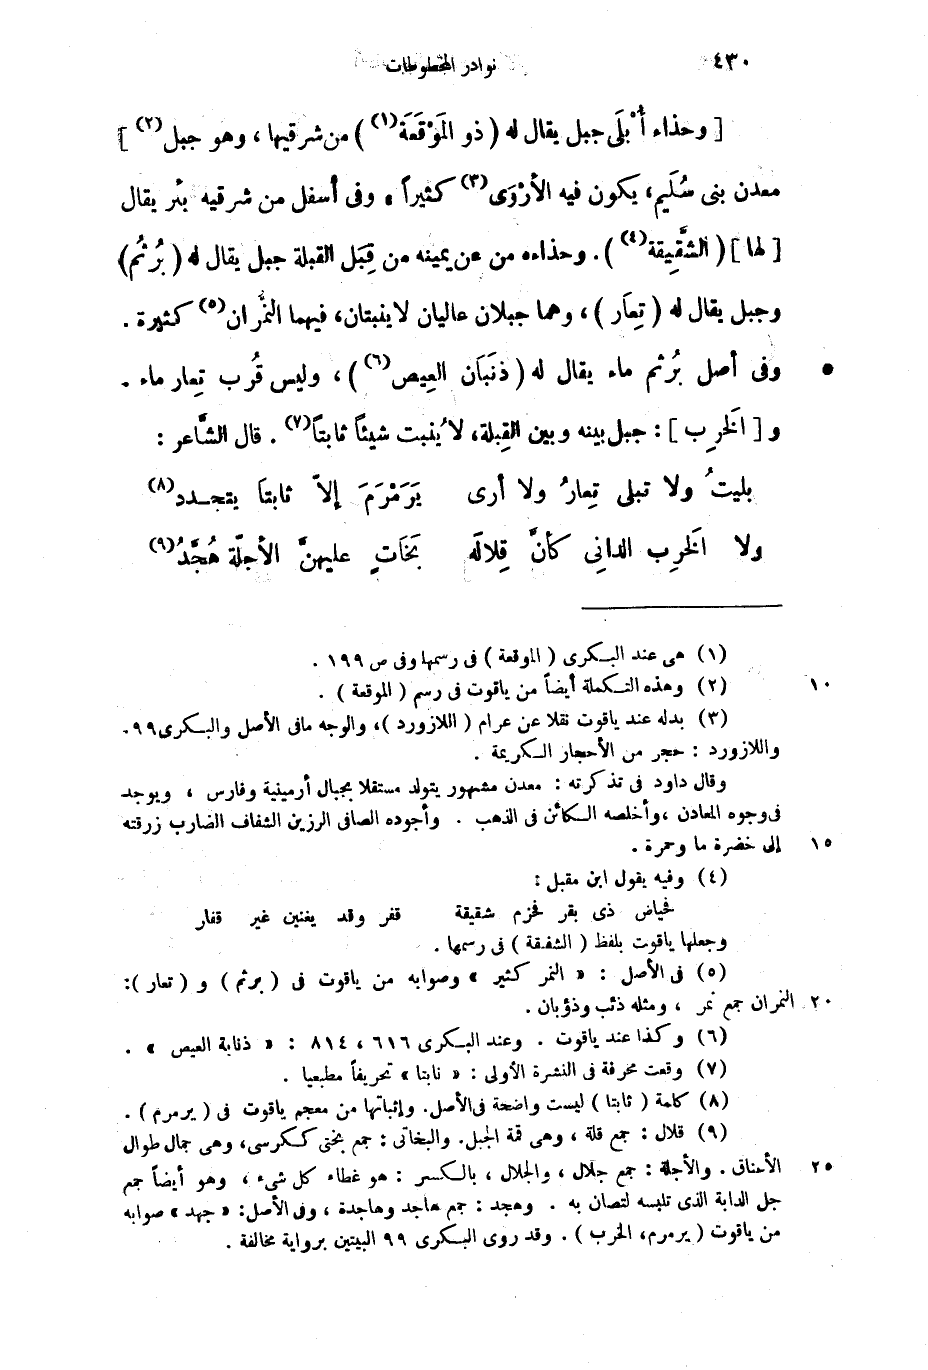 ٤٣٠
نوادر المخطوطات
[ وحذاء أُبْلَى جبل يقال له ( ذو المَوْقَعَة(١) ) من شرقيها ، وهو جبل(٢) ]
معدن بنى سُلَيم، يكون فيه الأرْوَى(٣) كثيراً ، وفى أسفل من شرقيه بئر يقال
[ لها ] ( الشَّقِيقة(٤) ) . وحذاءه من عن يمينه من قِبَل القبلة جبل يقال له ( بُرْثُم)
وجبل يقال له ( تِعَار ) ، وهما جبلان عاليان لاينبتان، فيهما النِّمْران(٥) كثيرة .
• وفى أصل بُرْثم ماء يقال له ( ذنَبَان العِيص(٦) ) ، وليس قُرب تِعار ماء .
و [ الخَرِب ] : جبل بينه وبين القِبلة، لا يُنبت شيئاً ثابتاً(٧) . قال الشَّاعر :
بليتُ ولا تبلى تِعارُ ولا أرى يَرَمْرَمَ إلاّ ثابتاً يتجــدد(٨)
ولا الخَرِب الدانى كأنَّ قِلالَه بَخَاتٍ عليهنَّ الأجلّة هُجَّدُ(٩)
(١) هى عند البـكرى ( الموقعة ) فى رسمها وفى ص ١٩٩ .
١٠ (٢) وهذه التـكملة أيضاً من ياقوت فى رسم ( الموقعة ) .
(٣) بدله عند ياقوت نقلا عن عرام ( اللازورد )، والوجه مافى الأصل والبـكرى ٩٩.
واللازورد : حجر من الأحجار الـكريمة .
وقال داود فى تذكرته : معدن مشهور يتولد مستقلا بجبال أرمينية وفارس ، ويوجد
فى وجوه المعادن ، وأخلصه الـكائن فى الذهب . وأجوده الصافى الرزين الشفاف الضارب زرقته
١٥ إلى خضرة ما وحمرة .
(٤) وفيه يقول ابن مقبل :
فحياض ذى بقر فحزم شقيقة قفر وقد يغنين غير قفار
وجعلها ياقوت بلفظ ( الشفيقة ) فى رسمها .
(٥) فى الأصل : « النمر كثير » وصوابه من ياقوت فى ( برثم ) و ( تعار ):
٢٠ النمران جمع نمر ، ومثله ذئب وذؤبان .
(٦) وكذا عند ياقوت . وعند البـكرى ٦١٦ ، ٨١٤ : « ذنابة العيص » .
(٧) وقعت محرفة فى النشرة الأولى : « نابتا » تحريفاً مطبعيا .
(٨) كلمة ( ثابتا ) ليست واضحة فى الأصل. وإثباتها من معجم ياقوت فى ( يرمرم ) .
(٩) قلال : جمع قلة ، وهى قمة الجبل. والبخاتى : جمع بختى كـكرسى، وهى جمال طوال
٢٥ الأعناق . والأجلة : جمع جلال ، والجلال ، بالـكسر : هو غطاء كل شىء ، وهو أيضاً جمع
جل الدابة الذى تلبسه لتصان به . وهجد : جمع هاجد وهاجدة ، وفى الأصل: « جهد » صوابه
من ياقوت ( يرمرم، الخرب ) . وقد روى البـكرى ٩٩ البيتين برواية مخالفة .